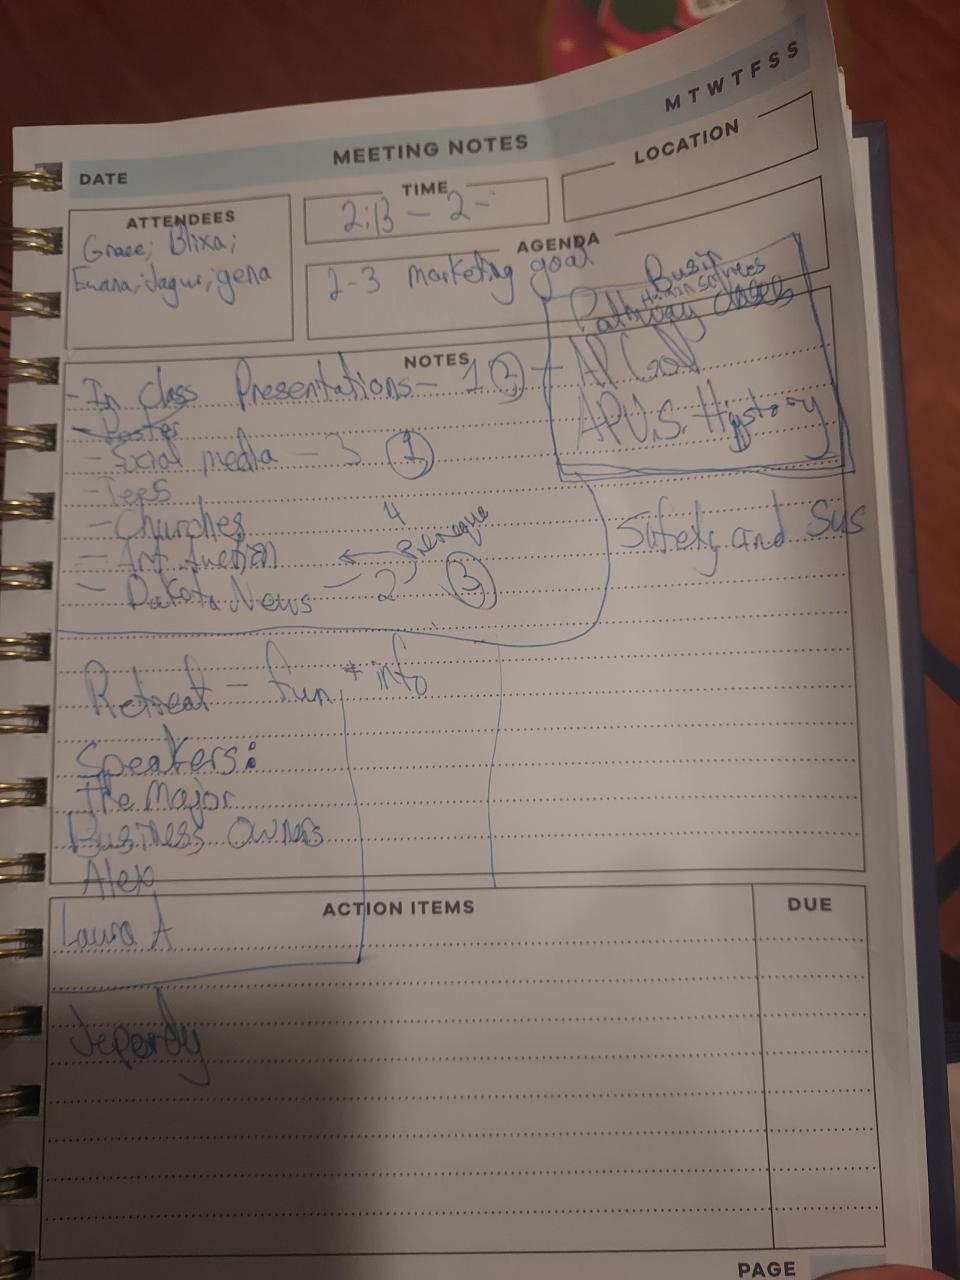 M T W T F S S
MEETING NOTES
DATE
LOCATION
TIME
2:13 - 2 -
ATTENDEES
Grace; Blixa;
Emana; Jaqui; gena
AGENDA
2-3 marketing goal
Busin
Human Services
Pathway classes
AP Gov
AP U.S. Hystory
NOTES
- In class Presentations - 1 2
- Poster
- Social media - 3 1
- Tees
- Churches 4
- Art Auction
- Dakota News - 2 3
Safety and Sus
Retreat - fun + info
Speakers:
The Major
Business Owners
Alex
Laura A
ACTION ITEMS
DUE
Jeperdy
PAGE